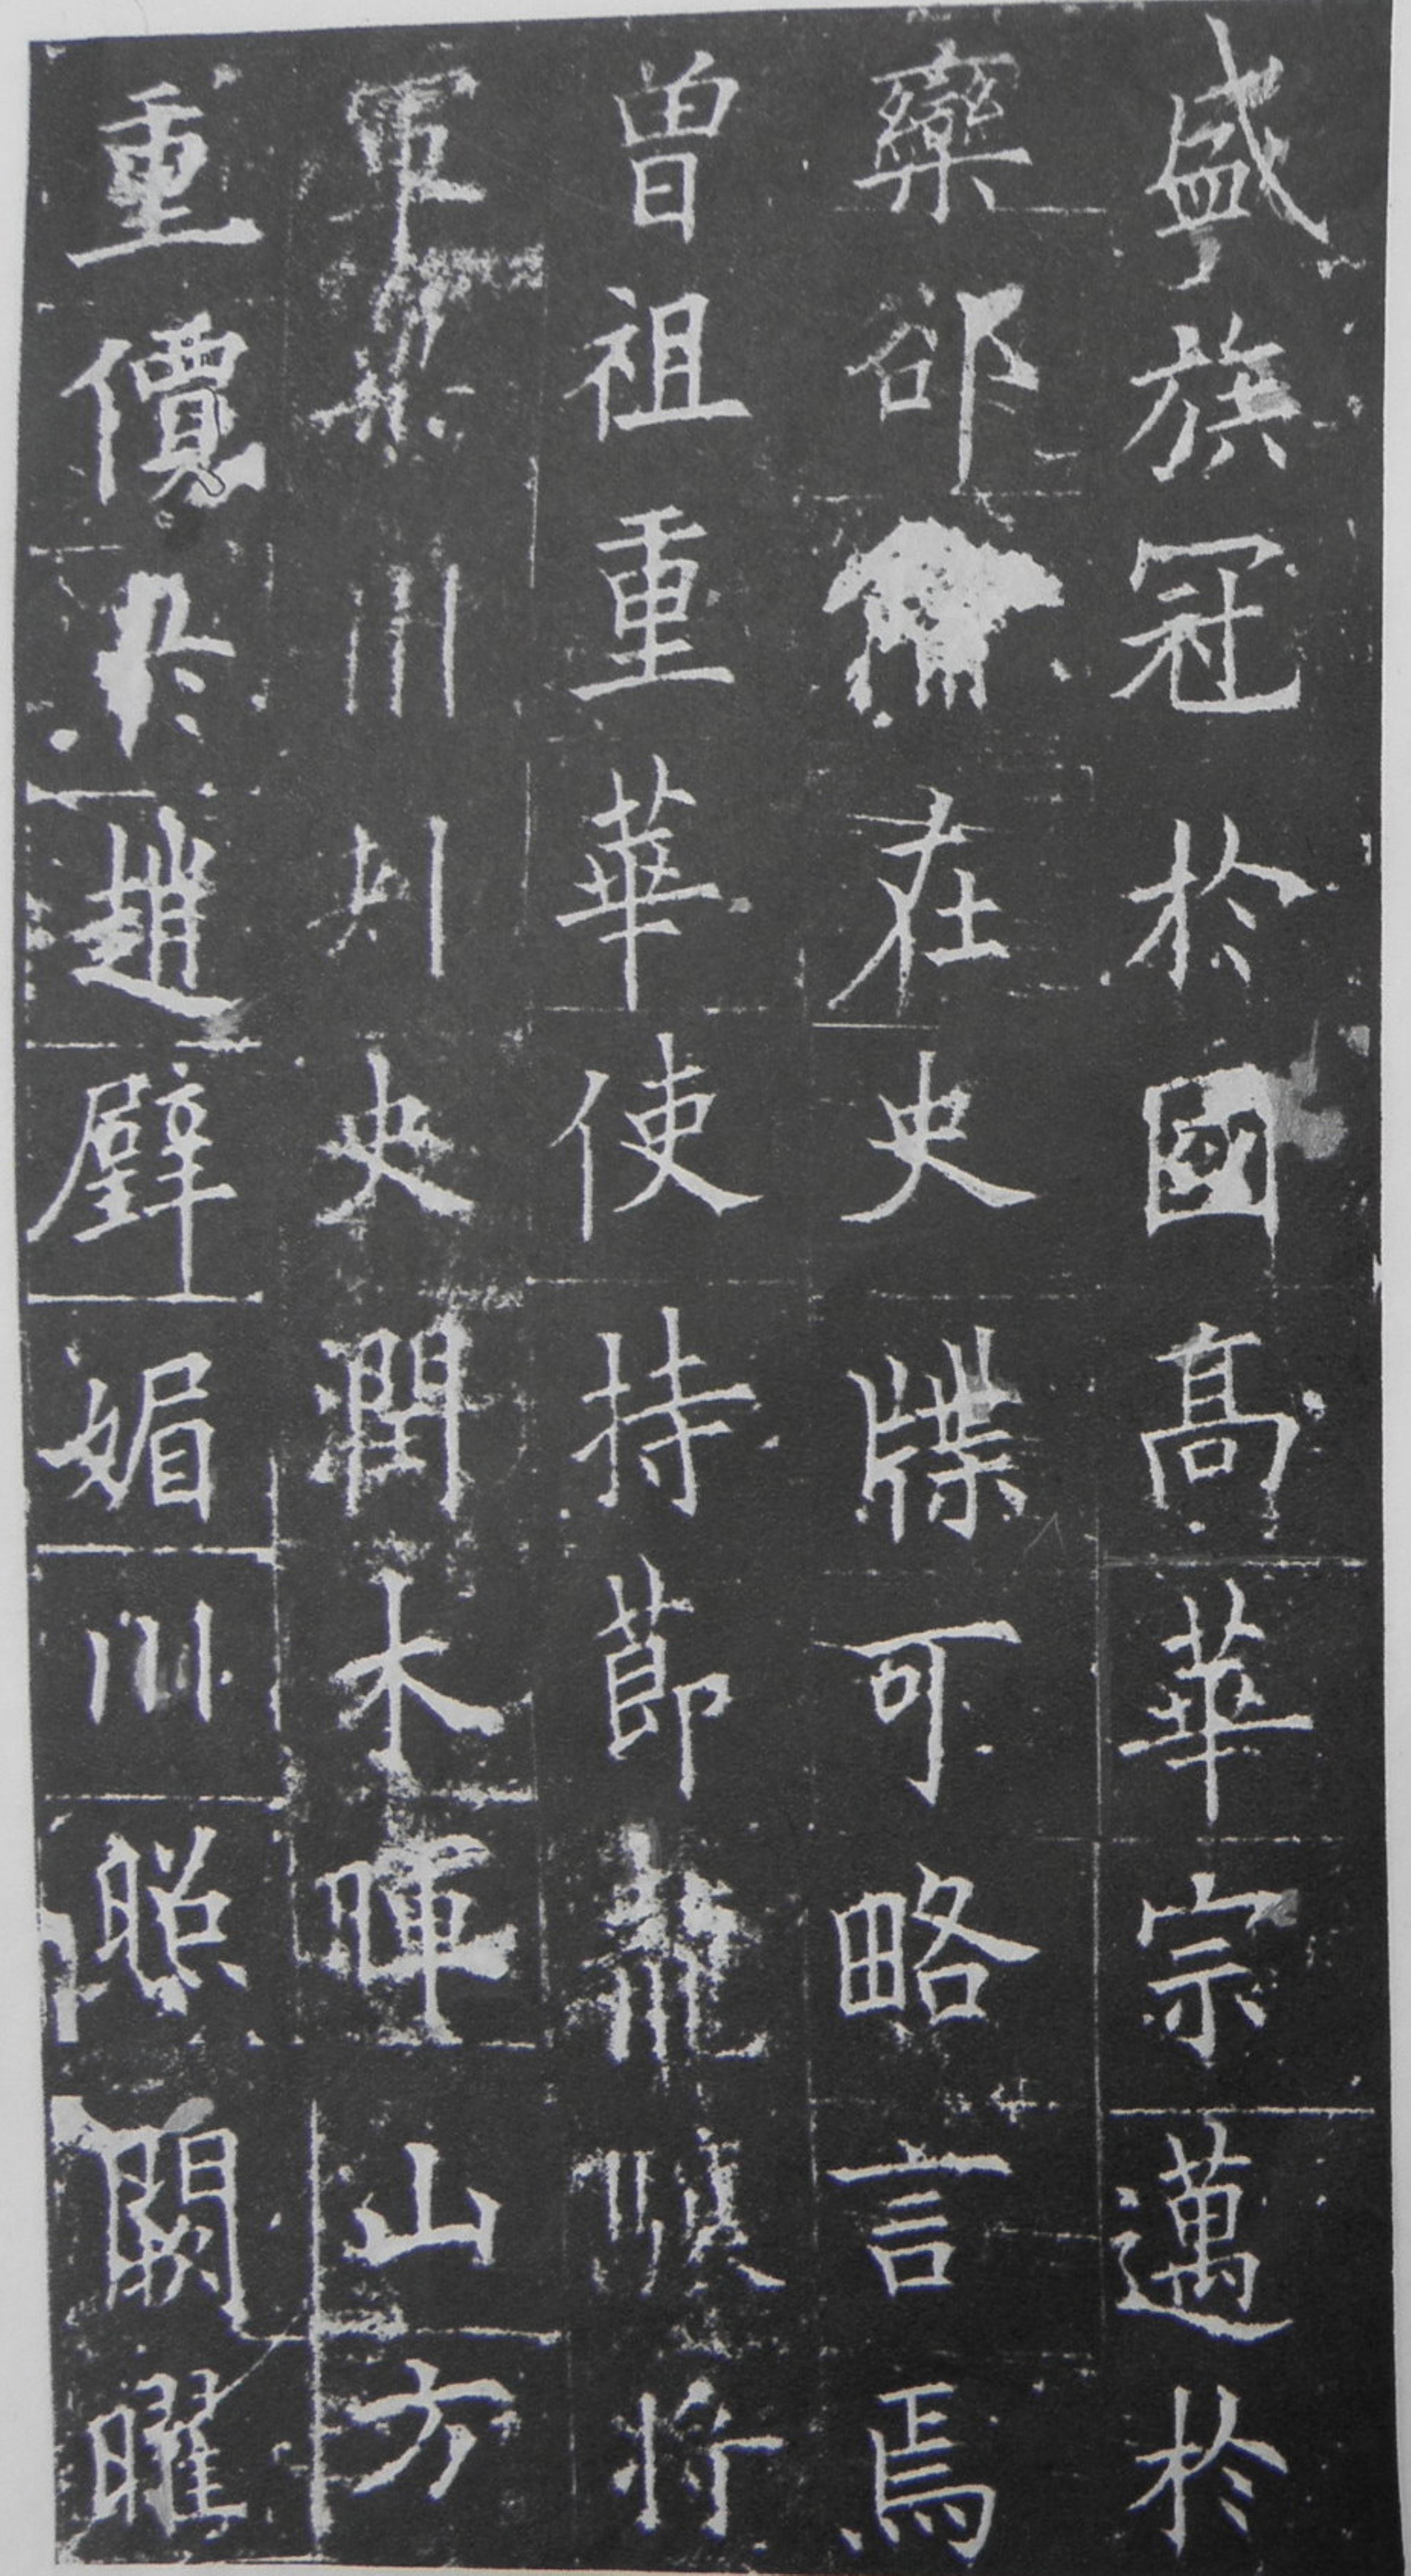 盛族冠於國高華宗邁於
欒郤在史牒可略言焉
曾祖重華使持節龍驤將
軍梁州刺史潤木暉山方
重價於趙璧媚川照闕曜